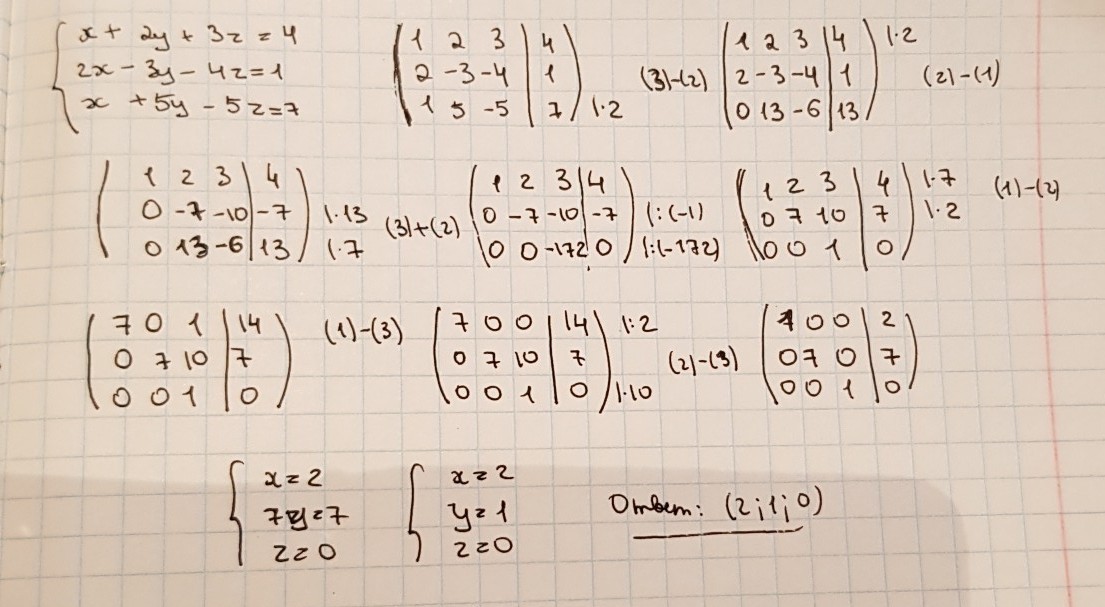 x + 2y + 3z = 4
2x - 3y - 4z = 1
x + 5y - 5z = 7
1 2 3 | 4
2 -3 -4 | 1
1 5 -5 | 7 |·2
(3)-(2)
1 2 3 | 4 |·2
2 -3 -4 | 1
0 13 -6 | 13
(2)-(1)
1 2 3 | 4
0 -7 -10 | -7 |·13
0 13 -6 | 13 |·7
(3)+(2)
1 2 3 | 4
0 -7 -10 | -7 |:(-1)
0 0 -172 | 0 |:(-172)
1 2 3 | 4 |·7
0 7 10 | 7 |·2
0 0 1 | 0
(1)-(2)
7 0 1 | 14
0 7 10 | 7
0 0 1 | 0
(1)-(3)
7 0 0 | 14 |:2
0 7 10 | 7
0 0 1 | 0 |·10
(2)-(3)
1 0 0 | 2
0 7 0 | 7
0 0 1 | 0
x = 2
7y = 7
z = 0
x = 2
y = 1
z = 0
Ответ: (2;1;0)